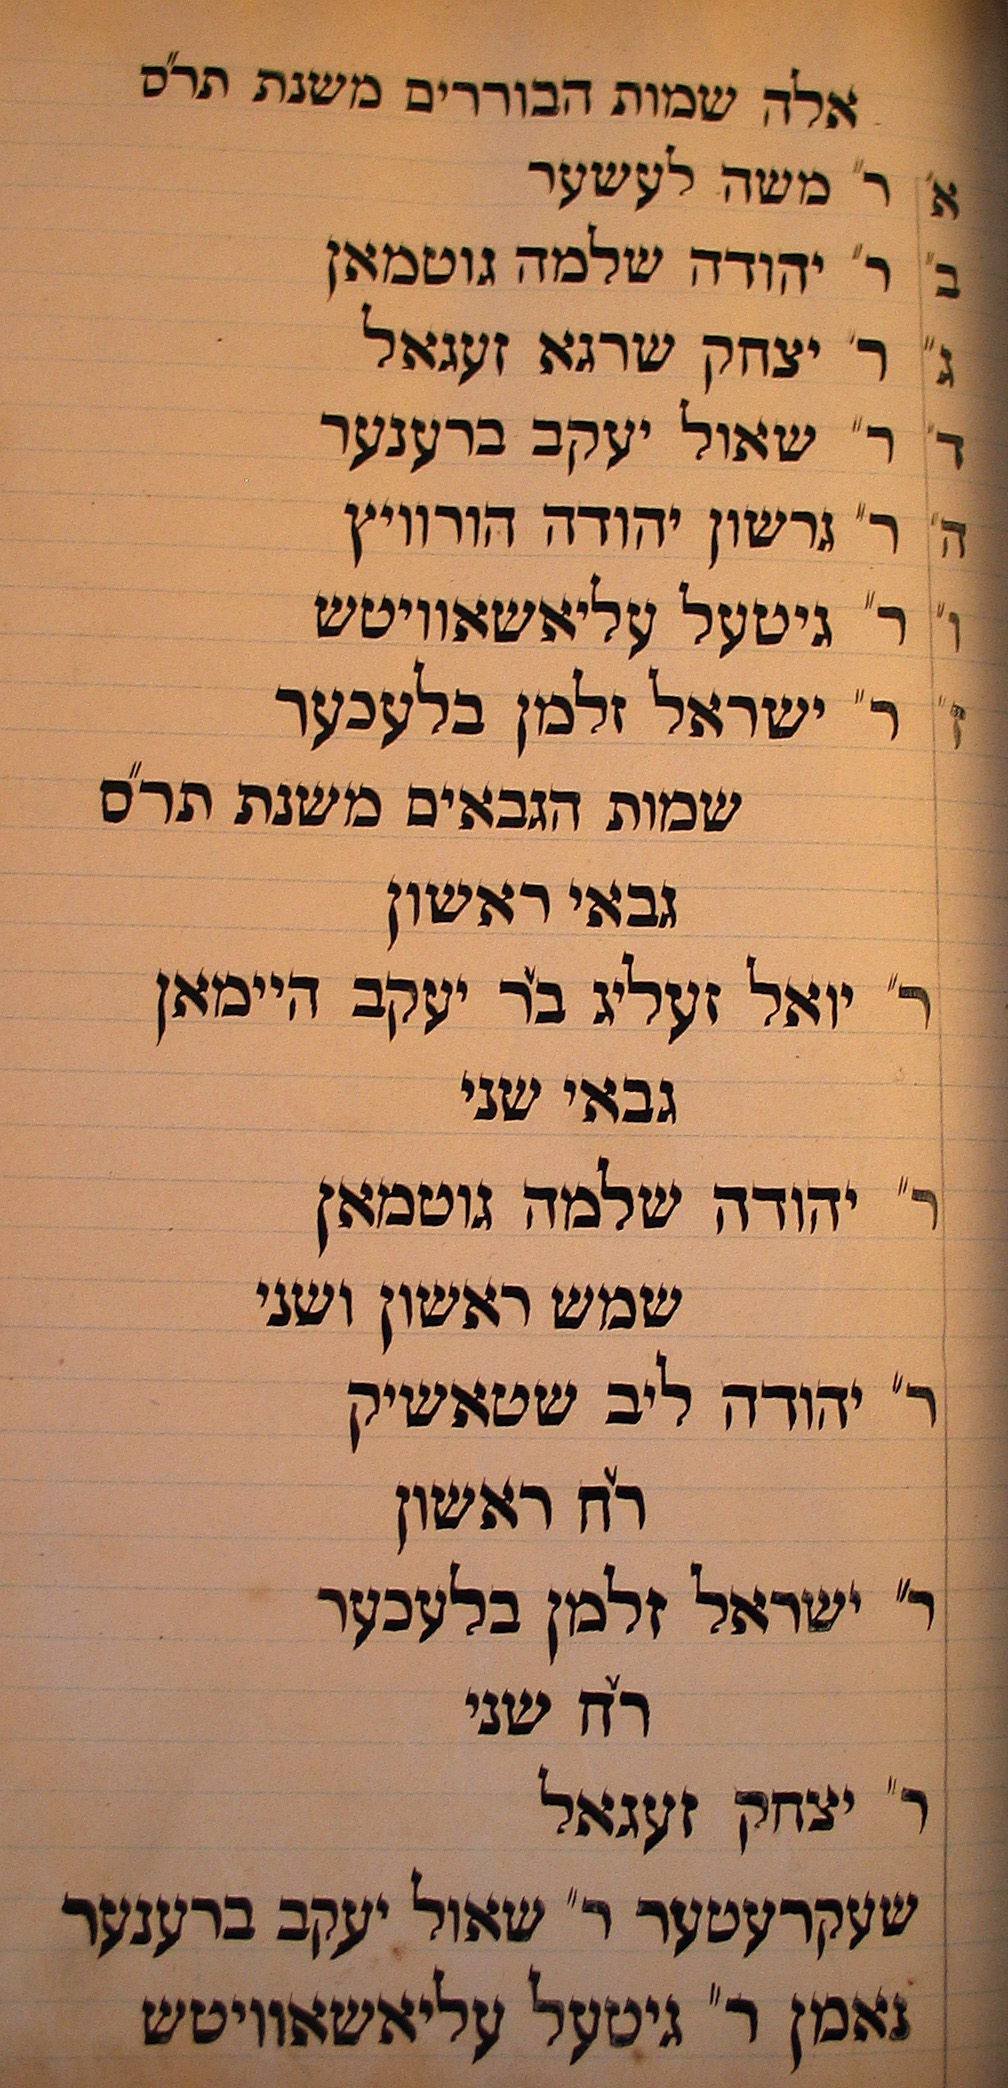 אלה שמות הבוררים משנת תר״ס
א׳ ר״ משה לעשער
ב״ ר״ יהודה שלמה גוטמאן
ג״ ר׳ יצחק שרגא זעגאל
ד״ ר״ שאול יעקב ברענער
ה״ ר״ גרשון יהודה הורוויץ
ו״ ר״ גיטעל עליאשאוויטש
ז״ ר״ ישראל זלמן בלעכער
שמות הגבאים משנת תר״ס
גבאי ראשון
ר״ יואל זעליג ב״ר יעקב היימאן
גבאי שני
ר״ יהודה שלמה גוטמאן
שמש ראשון ושני
ר״ יהודה ליב שטאשיק
ר״ח ראשון
ר״ ישראל זלמן בלעכער
ר״ח שני
ר״ יצחק זעגאל
שעקרעטער ר״ שאול יעקב ברענער
נאמן ר״ גיטעל עליאשאוויטש